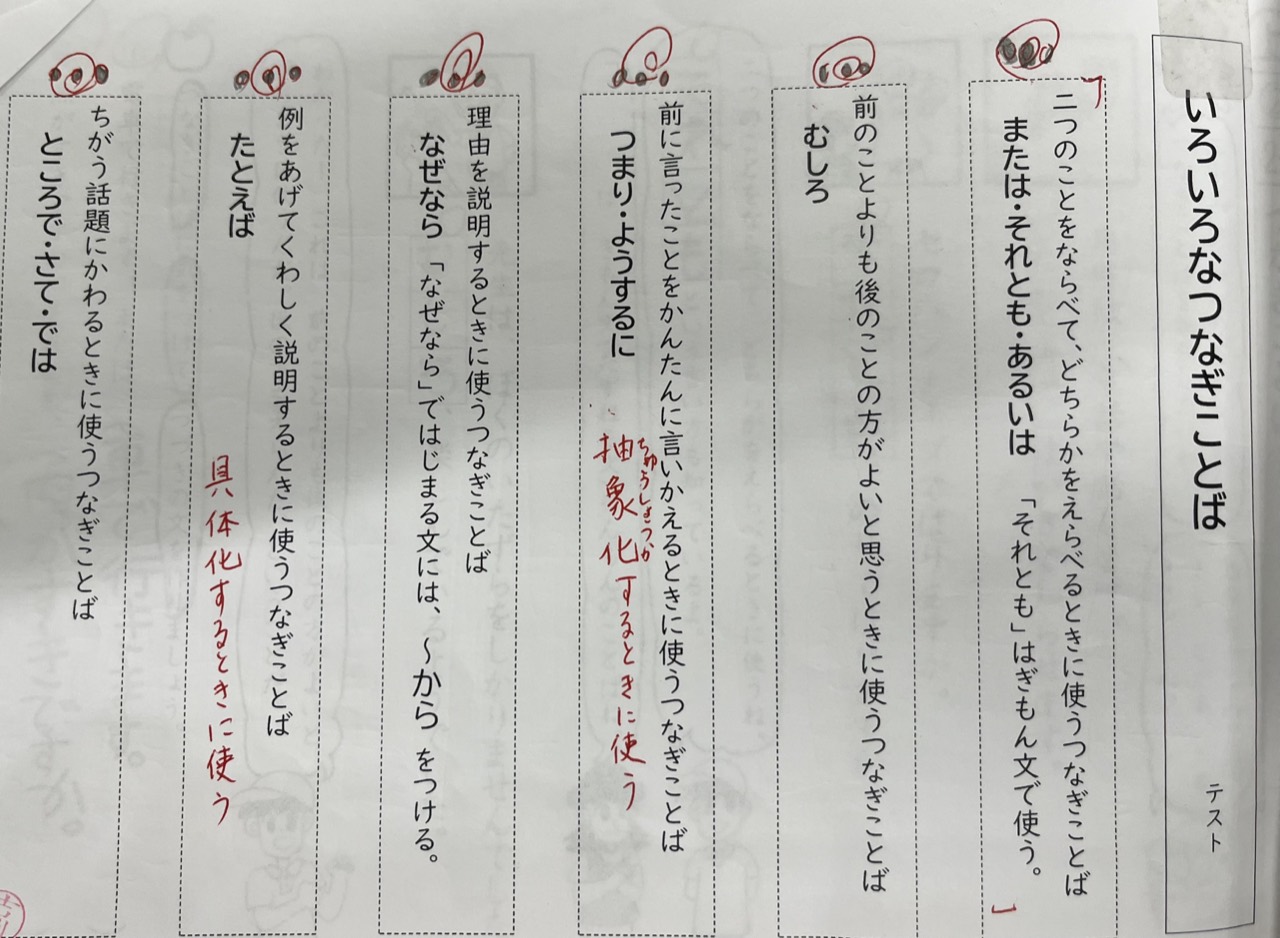 いろいろなつなぎことば
テスト
二つのことをならべて、どちらかをえらべるときに使うつなぎことば
または・それとも・あるいは 「それとも」はぎもん文で使う。
前のことよりも後のことの方がよいと思うときに使うつなぎことば
むしろ
前に言ったことをかんたんに言いかえるときに使うつなぎことば
つまり・ようするに
ちゅうしょうか
抽象化するときに使う
理由を説明するときに使うつなぎことば
なぜなら 「なぜなら」ではじまる文には、〜から をつける。
例をあげてくわしく説明するときに使うつなぎことば
たとえば
具体化するときに使う
ちがう話題にかわるときに使うつなぎことば
ところで・さて・では